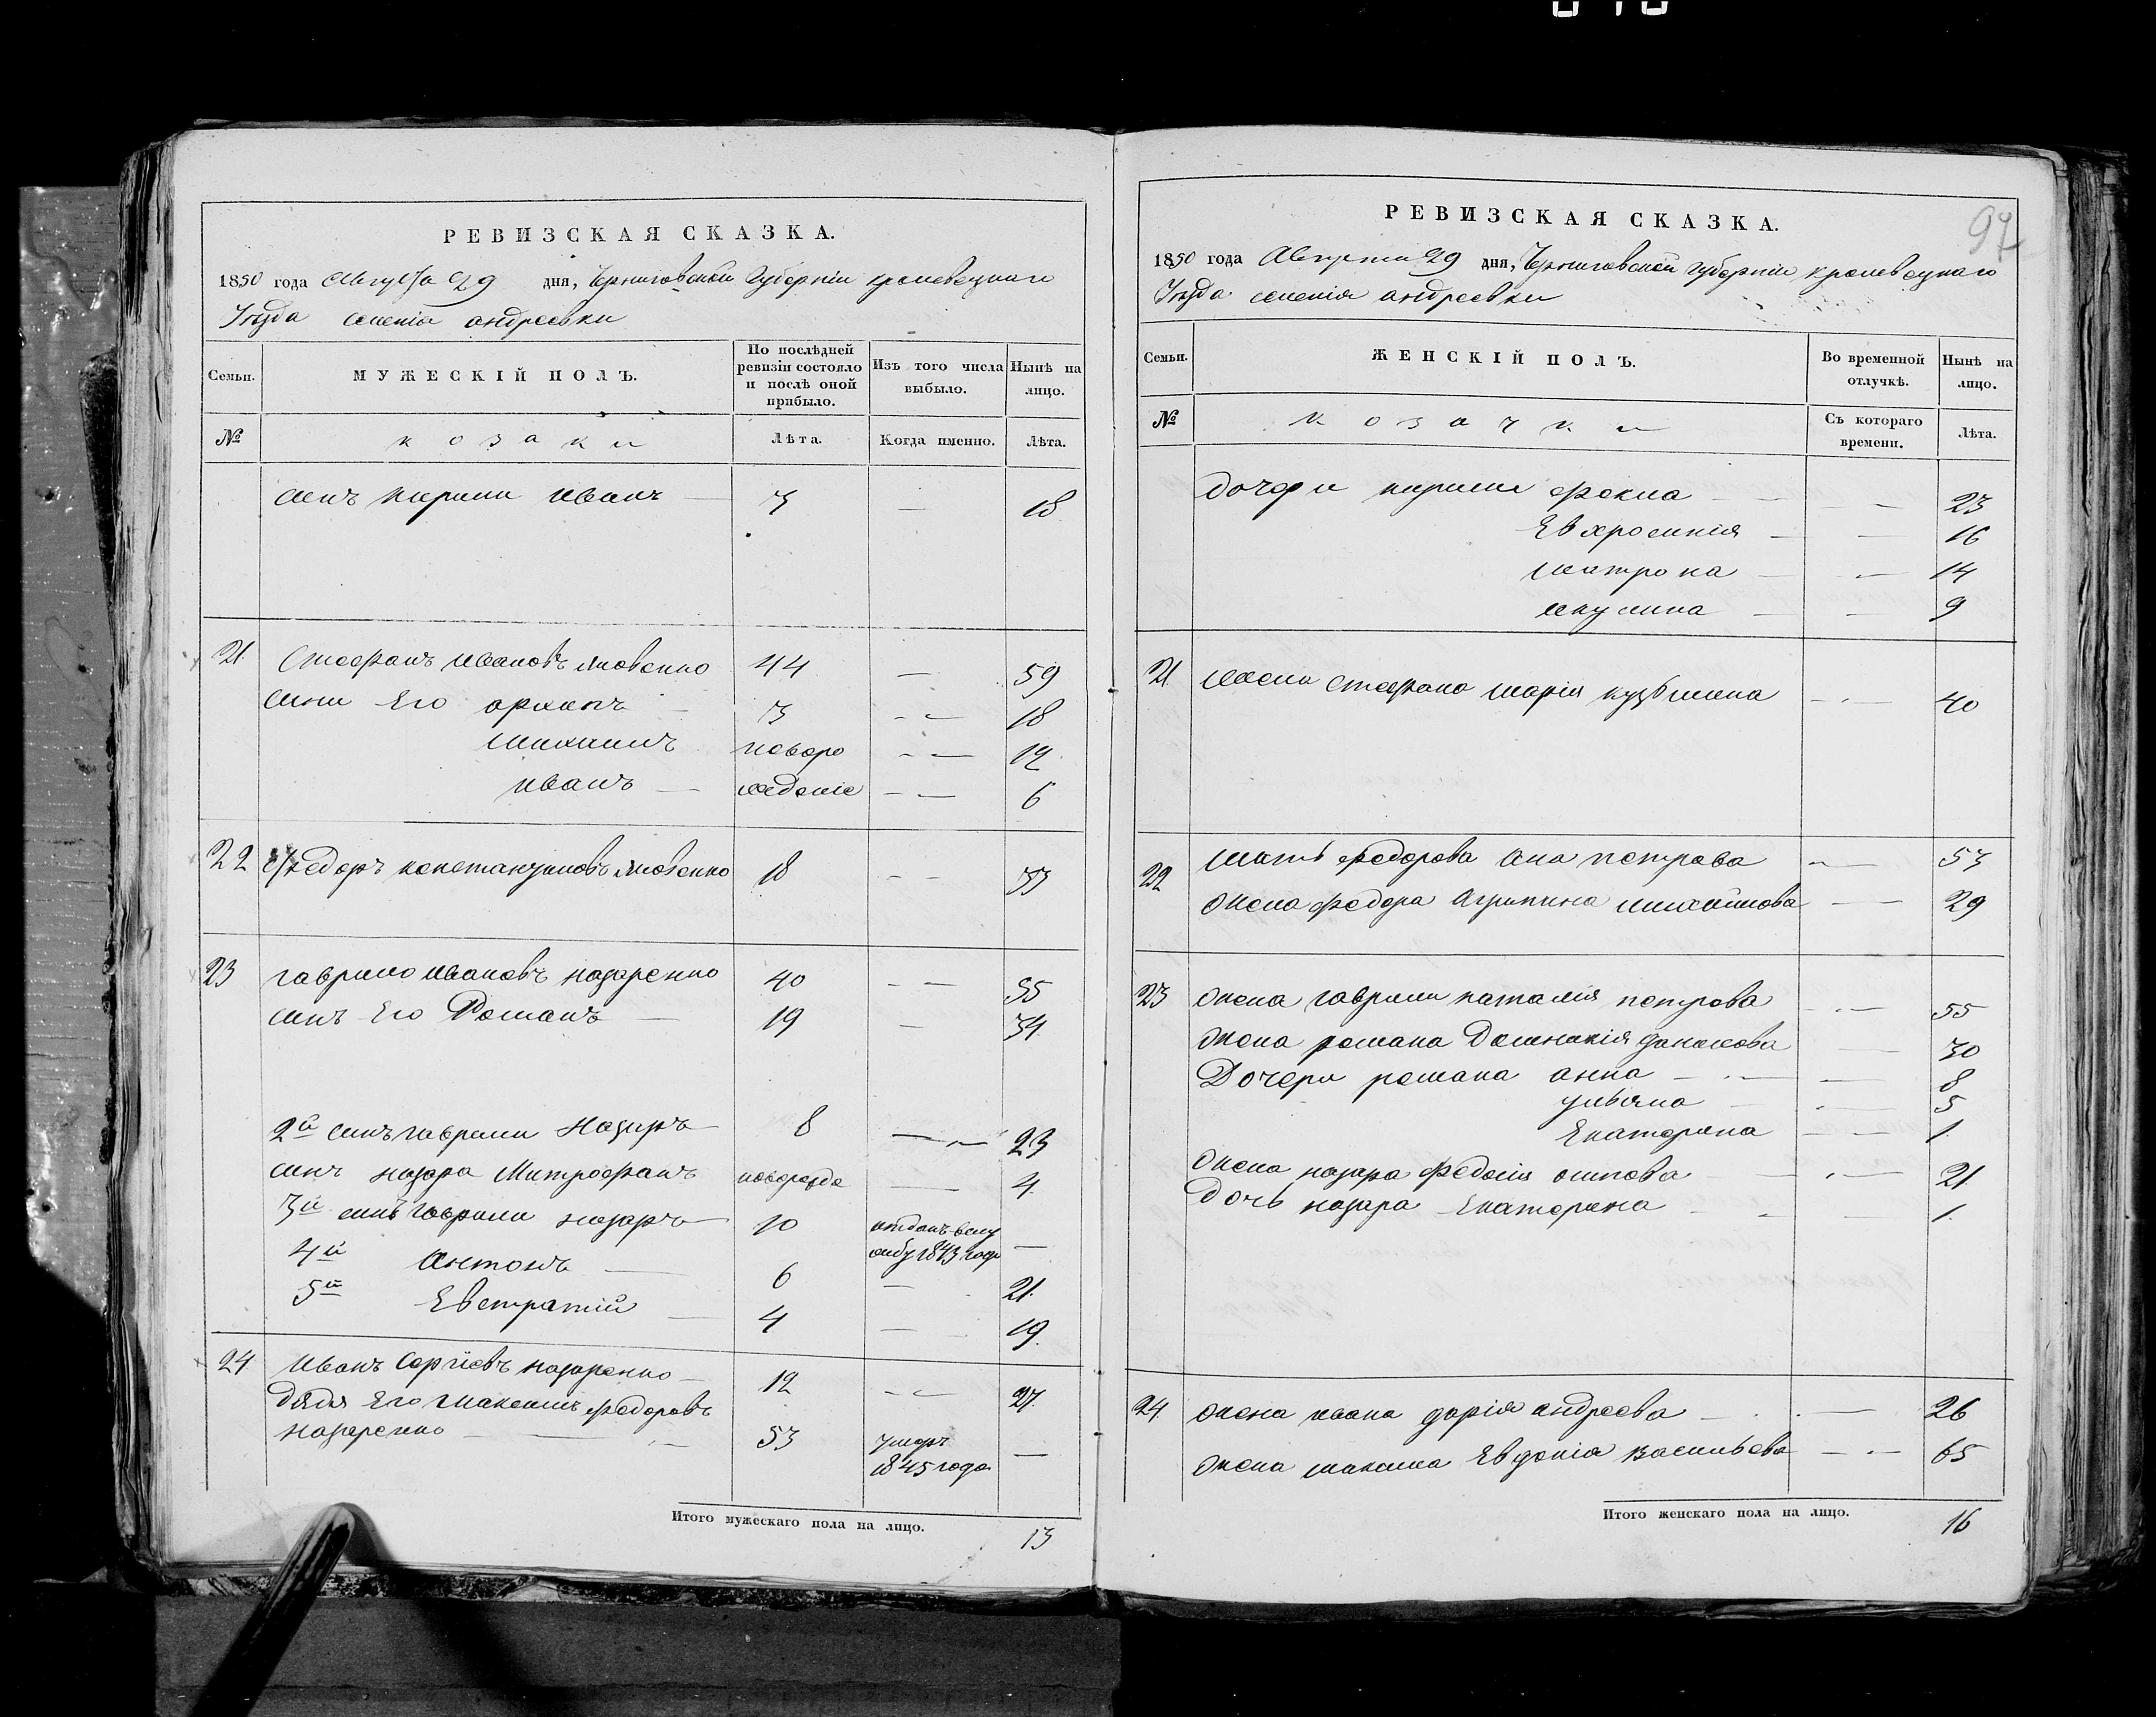 РЕВИЗСКАЯ СКАЗКА.
1850 года Августа 29 дня, Черниговской Губерніи кролевецкаго
Уѣзда селенія андреевки
Семьи.
МУЖЕСКІЙ ПОЛЪ.
По послѣдней ревизіи состояло и послѣ оной прибыло.
Изъ того числа выбыло.
Нынѣ на лицо.
№
козаки
Лѣта.
Когда именно.
Лѣта.
синъ кирили иванъ — 3 — 18
21 Стефанъ ивановъ яковенко 44 — 59
сини его 3 — 18
михаилъ новоро — 12
иванъ — жденіе — 6
22 Федоръ константиновъ яковенко 18 — 33
23 гаврило ивановъ назаренко 40 — 55
синъ его Романъ — 19 — 34
2й синъ гаврили Назаръ 8 — 23
синъ назара Митрофанъ новорожде — 4
3й синъ гаврили назаръ 10 отданъ 1843 года —
4й Антонъ — 6 — 21
5й Евстратий — 4 — 19
24 иванъ Сергіевъ назаренко — 12 — 27
дядя его максимъ федоровъ
назаренко — 53 умеръ —
1845 года
Итого мужескаго пола на лицо. 13
97
РЕВИЗСКАЯ СКАЗКА.
1850 года Августа 29 дня, Черниговской губерніи кролевецкаго
Уѣзда селенія андреевки
Семьи.
ЖЕНСКІЙ ПОЛЪ.
Во временной отлучкѣ.
Нынѣ на лицо.
№
козачки
Съ котораго времени.
Лѣта.
дочери кирили фекла — 23
Евхросинія — 16
матрона — 14
акулина — 9
21 жена стефана марія кузьмина — 40
22 мать федорова Ана петрова — 53
жена федора Агрипина михайлова — 29
23 жена гаврили наталія петрова — 55
жена романа Домникія данилова — 30
Дочери романа анна — 8
уліяна — 5
Екатерина — 1
жена назара Федосія осипова — 21
дочь назара Екатерина — 1
24 жена ивана дарія андреева — 26
жена максима Евдокія васильева — 65
Итого женскаго пола на лицо. 16